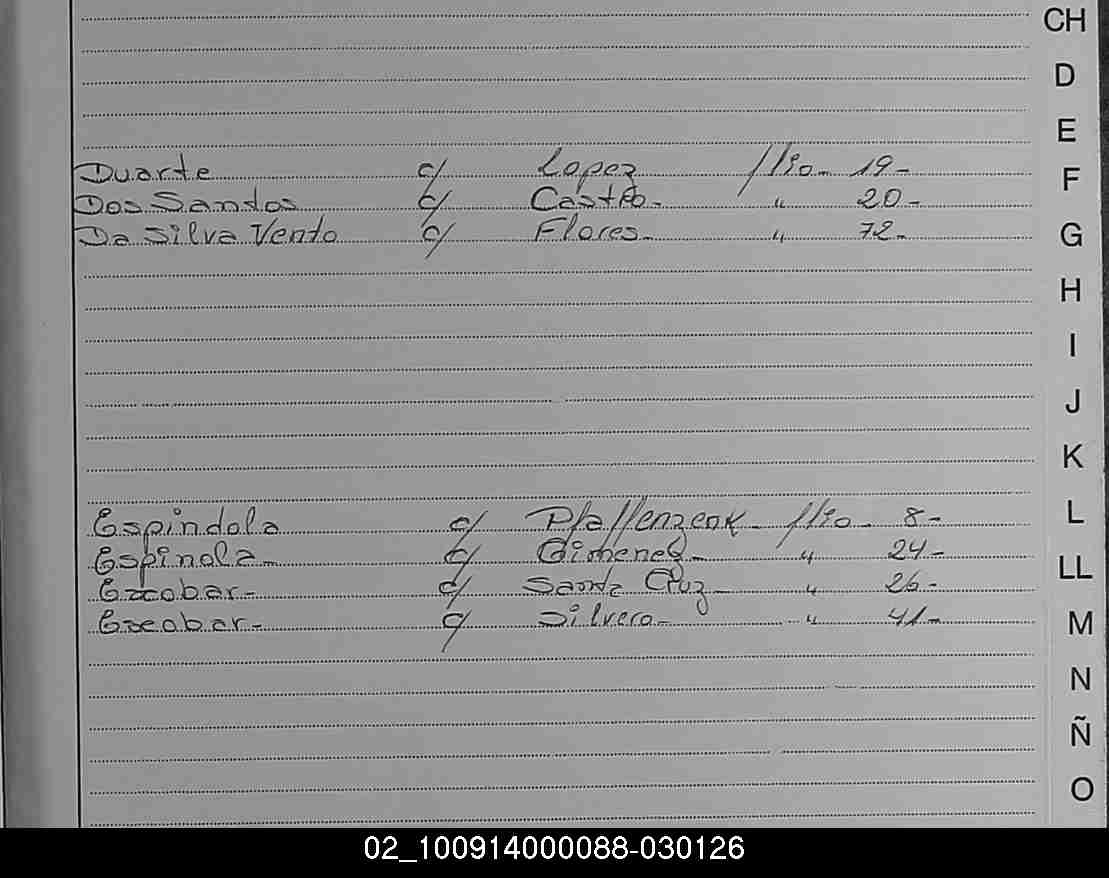 CH
D
E
F
G
H
I
J
K
L
LL
M
N
Ñ
O
Duarte c/ Lopez flio. 19-
Dos Santos c/ Castro. " 20-
Da Silva Vento c/ Flores. " 72.
Espindola c/ flio. 8-
Espinola. c/ Gimenez. " 24-
Escobar- c/ Santa Cruz " 26-
Escobar- c/ Silvero. " 41-
02_100914000088-030126